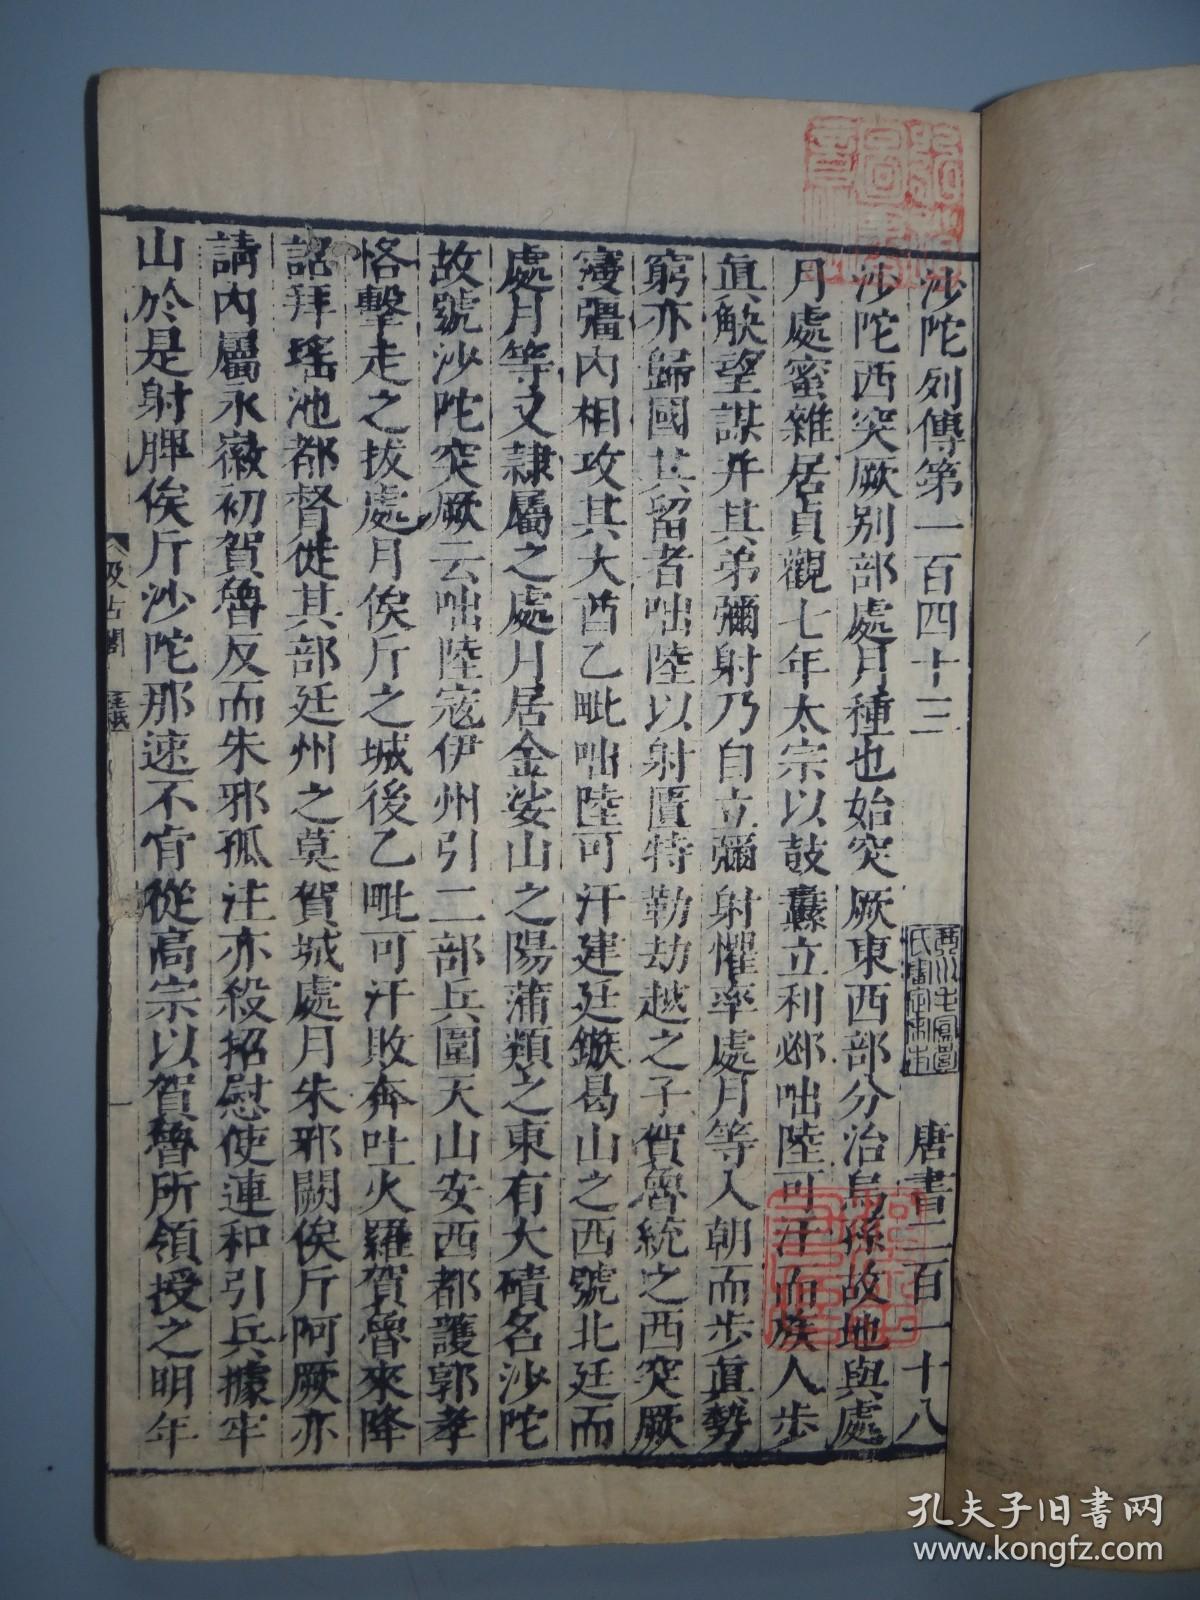 沙陀列傳第一百四十三 唐書二百一十八
沙陀西突厥别部處月種也始突厥東西部分治烏孫故地與處
月處蜜雜居貞觀七年太宗以鼓纛立利邲咄陸可汗而族人步
眞觖望謀幷其弟彌射乃自立彌射懼率處月等入朝而步眞勢
窮亦歸國其留者咄陸以射匱特勒劫越之子賀魯統之西突厥
寖彊内相攻其大酋乙毗咄陸可汗建廷鏃曷山之西號北廷而
處月等又隷屬之處月居金娑山之陽蒲類之東有大磧名沙陀
故號沙陀突厥云咄陸寇伊州引二部兵圍天山安西都護郭孝
恪擊走之拔處月俟斤之城後乙毗可汗敗奔吐火羅賀魯來降
詔拜瑤池都督徙其部廷州之莫賀城處月朱邪闕俟斤阿厥亦
請内屬永徽初賀魯反而朱邪孤注亦殺招慰使連和引兵據牢
山於是射脾俟斤沙陀那速不肯從高宗以賀魯所領授之明年
汲古閣
孔夫子旧书网
www.kongfz.com